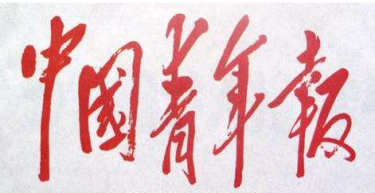 中國青年报